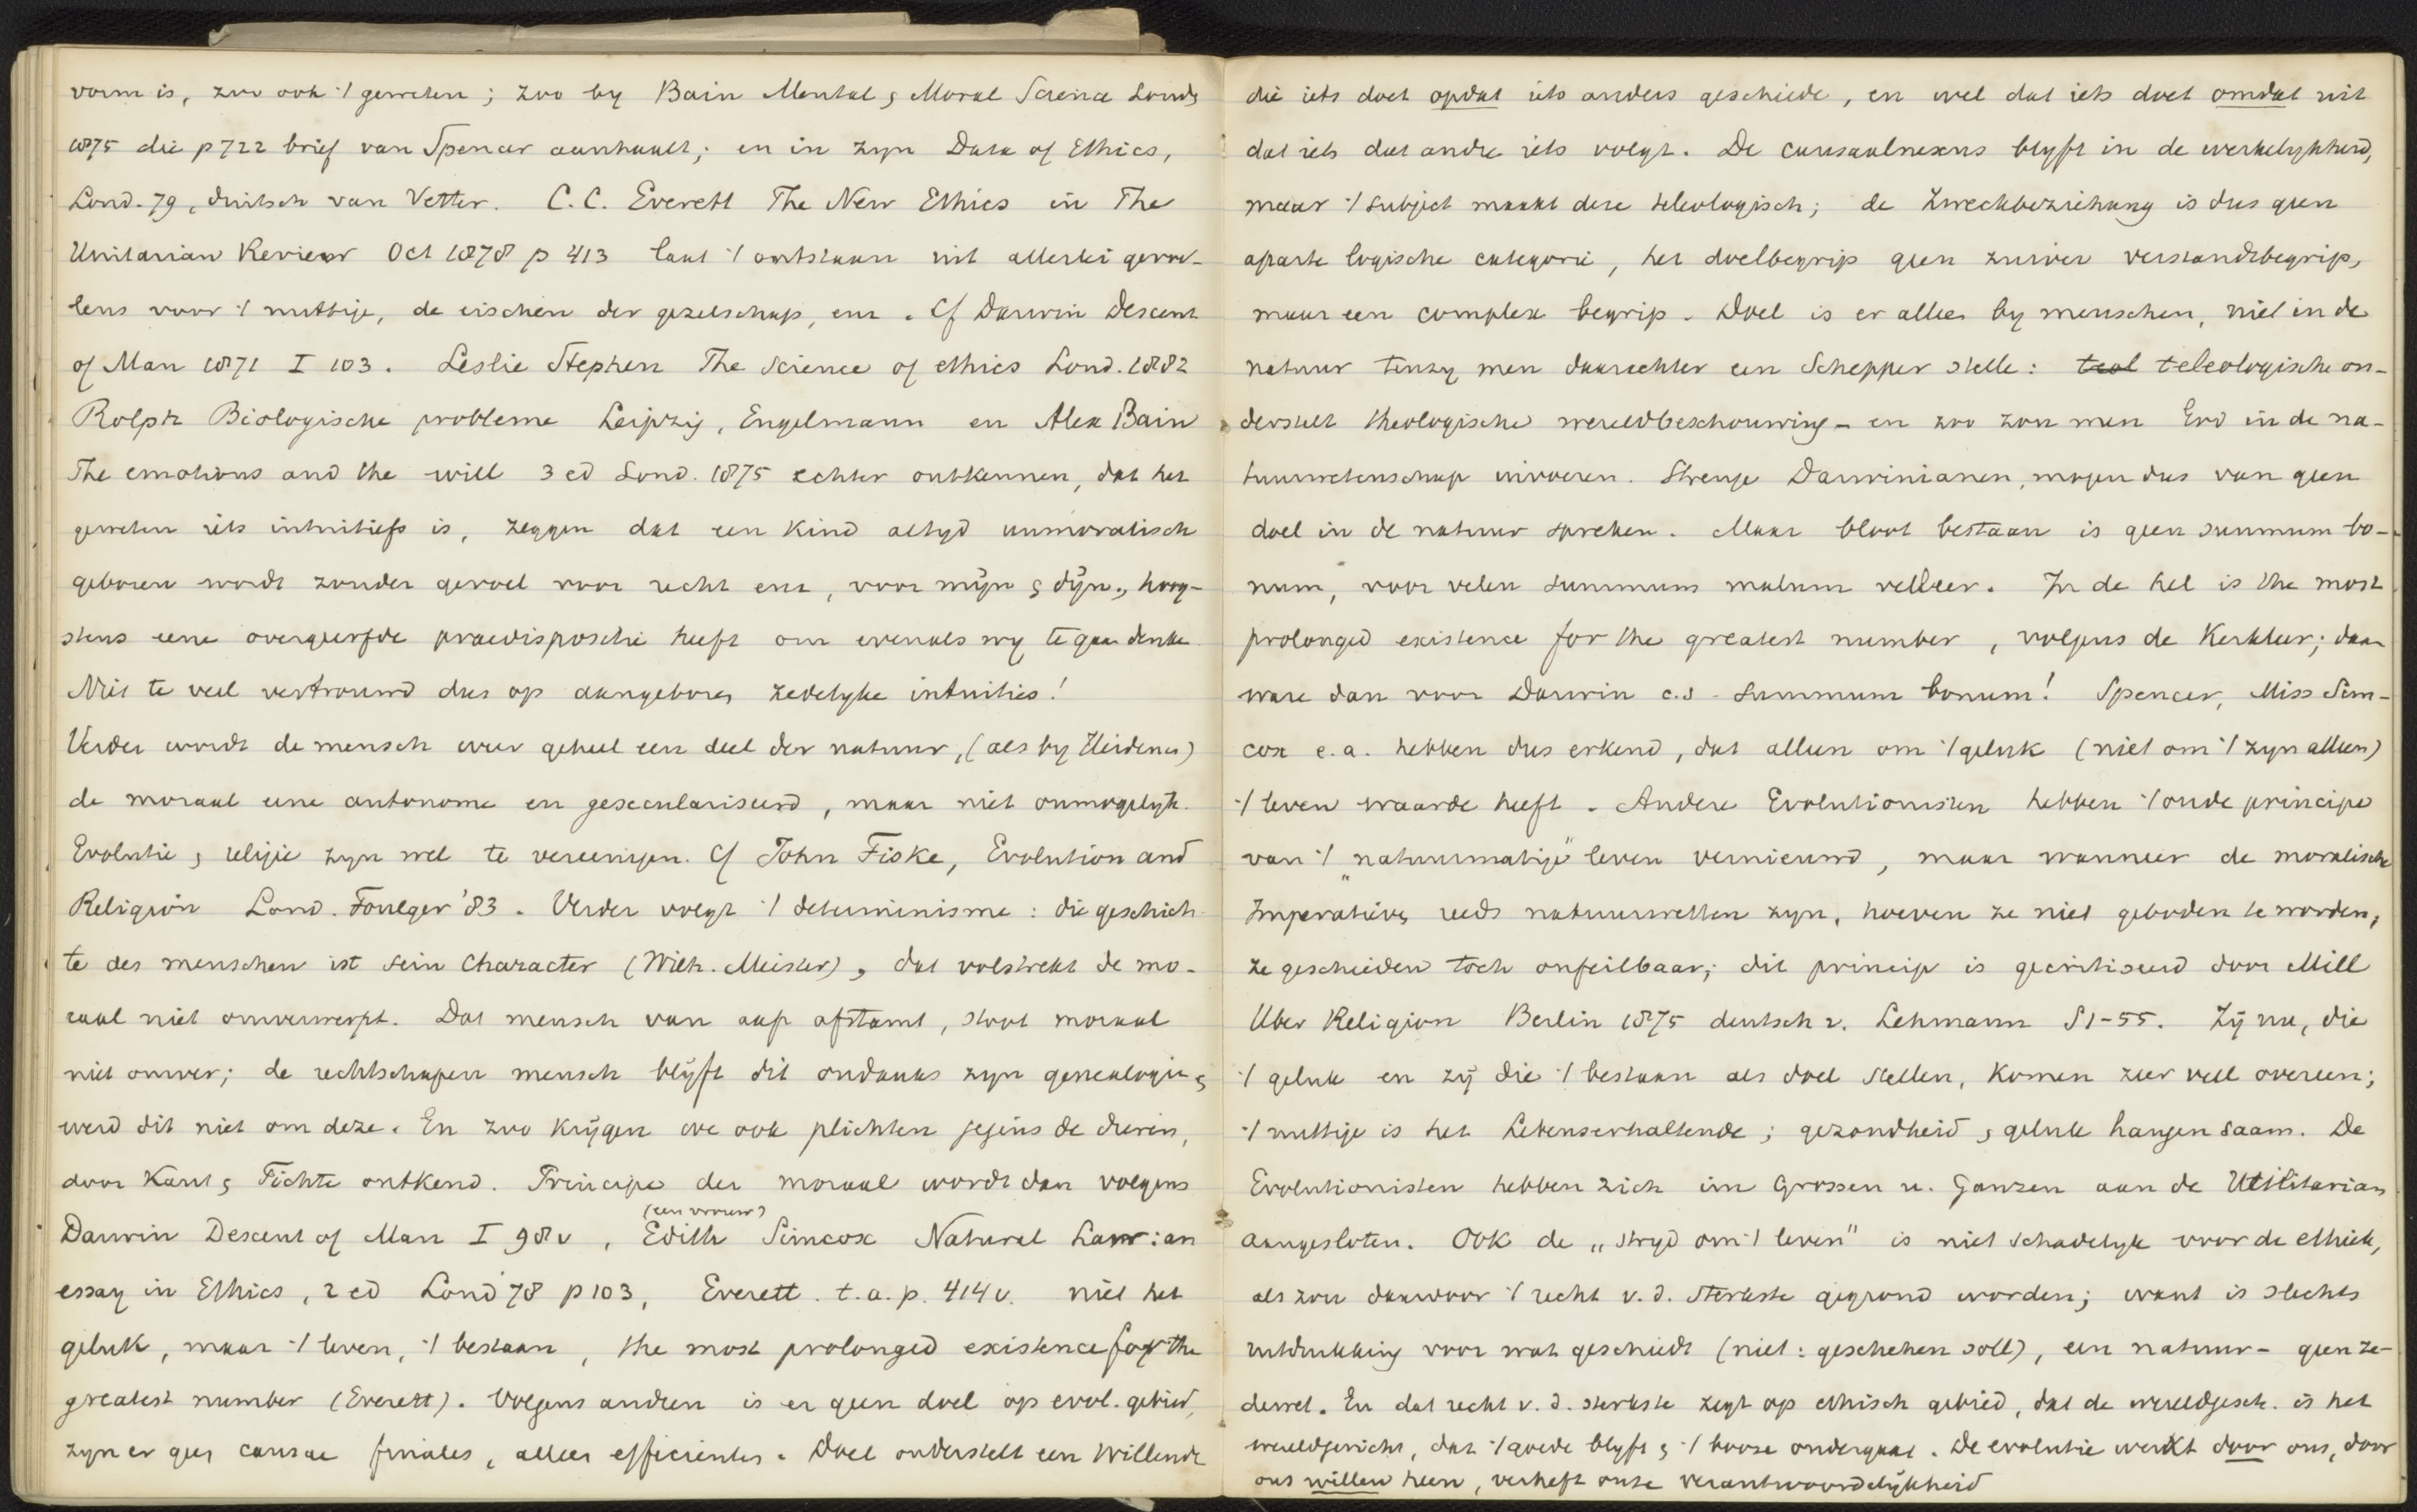 vorm is, zoo ook 't geweten; zoo by Bain Mental & Moral Science Lond.
1875 die p 722 brief van Spencer aanhaalt; en in zyn Data of Ethics,
Lond. 79, duitsch van Vetter. C.C. Everett The New Ethics in The
Unitarian Review Oct 1878 p 413 laat 't ontstaan uit allerlei gevoe-
lens voor 't nuttige, de eischen der gezelschap, enz. Cf Darwin Descent
of Man 1871 I 103. Leslie Stephen The Science of ethics Lond. 1882
Rolph Biologische probleme Leipzig, Engelmann en Alex Bain
The emotions and the will 3 ed Lond. 1875 echter ontkennen, dat het
geweten iets intuitiefs is, zeggen dat een kind altyd unmoralisch
geboren wordt zonder gevoel voor recht enz, voor mijn & dijn, hoog-
stens eene overgeërfde praedispositie heeft om evenals wy te gaan denken.
Niet te veel vertrouwd dus op aangeboren zedelyke intuities!
Verder wordt de mensch weer geheel een deel der natuur, (als by Heidenen)
de moraal eene autonome en gesaeculariseerd, maar niet onmogelyk.
Evolutie & religie zyn wel te vereenigen. Cf John Fiske, Evolution and
Religion Lond. Foulger '83. Verder volgt 't determinisme: die geschich-
te des menschen ist sein Character (Wilh. Meister), dat volstrekt de mo-
raal niet omverwerpt. Dat mensch van aap afstamt, stoot moraal
niet omver; de rechtschapen mensch blijft dit ondanks zyn genealogie &
werd dit niet om deze. En zoo krijgen we ook plichten jegens de dieren,
door Kant & Fichte ontkend. Principe der moraal wordt dan volgens
Darwin Descent of Man I 98 v, Edith (een vrouw) Simcox Natural Law: an
essay in Ethics, 2 ed Lond '78 p 103, Everett t.a.p. 414 v. niet het
geluk, maar 't leven, 't bestaan, the most prolonged existence for the
greatest number (Everett). Volgens anderen is er geen doel op evol. gebied,
zyn er geen causae finales, alleen efficientes. Doel onderstelt een Willende
die iets doet opdat iets anders geschiede, en wel dat iets doet omdat uit
dat iets dat andre iets volgt. De causaalnexus blyft in de werkelykheid,
maar 't subject maakt deze teleologisch; de Zweckbeziehung is dus geen
aparte logische categorie, het doelbegrip geen zuiver verstandsbegrip,
maar een complex begrip. Doel is er alleen by menschen, niet in de
natuur tenzy men daarachter een Schepper stelle: teol teleologische on-
derstelt theologische wereldbeschouwing - en zoo zou men God in de na-
tuurwetenschap invoeren. Strenge Darwinianen, mogen dus van geen
doel in de natuur spreken. Maar bloot bestaan is geen summum bo-
num, voor velen summum malum veleer. In de hel is the most
prolonged existence for the greatest number, volgens de Kerkleer; daar
ware dan voor Darwin c.s. summum bonum! Spencer, Miss Sim-
cox e.a. hebben dus erkend, dat alleen om 't geluk (niet om 't zyn alleen)
't leven waarde heeft. Andere Evolutionisten hebben 't oude principe
van 't „natuurmatige" leven vernieuwd, maar wanneer de moralische
Imperatieven reeds natuurwetten zyn, hoeven ze niet geboden te worden,
ze geschieden toch onfeilbaar; dit principe is gecritiseerd door Mill
Uber Religion Berlin 1875 deutsch v. Lehmann S 1-55. Zij nu, die
't geluk en zij die 't bestaan als doel stellen, komen zeer veel overeen;
't nuttige is het Lebenserhaltende; gezondheid & geluk hangen saam. De
Evolutionisten hebben zich im Grossen u. Ganzen aan de Utilitarians
aangesloten. Ook de „stryd om 't leven" is niet schadelyk voor de ethiek,
als zou daardoor 't recht v. d. sterkste gegrond worden; want is slechts
uitdrukking voor wat geschiedt (niet: geschehen soll), een natuur- geen ze-
dewet. En dat recht v. d. sterkste zegt op ethisch gebied, dat de wereldgesch. is het
wereldgericht, dat 't goede blyft & 't booze ondergaat. De evolutie werkt door ons, door
ons willen heen, verheft onze verantwoordelijkheid